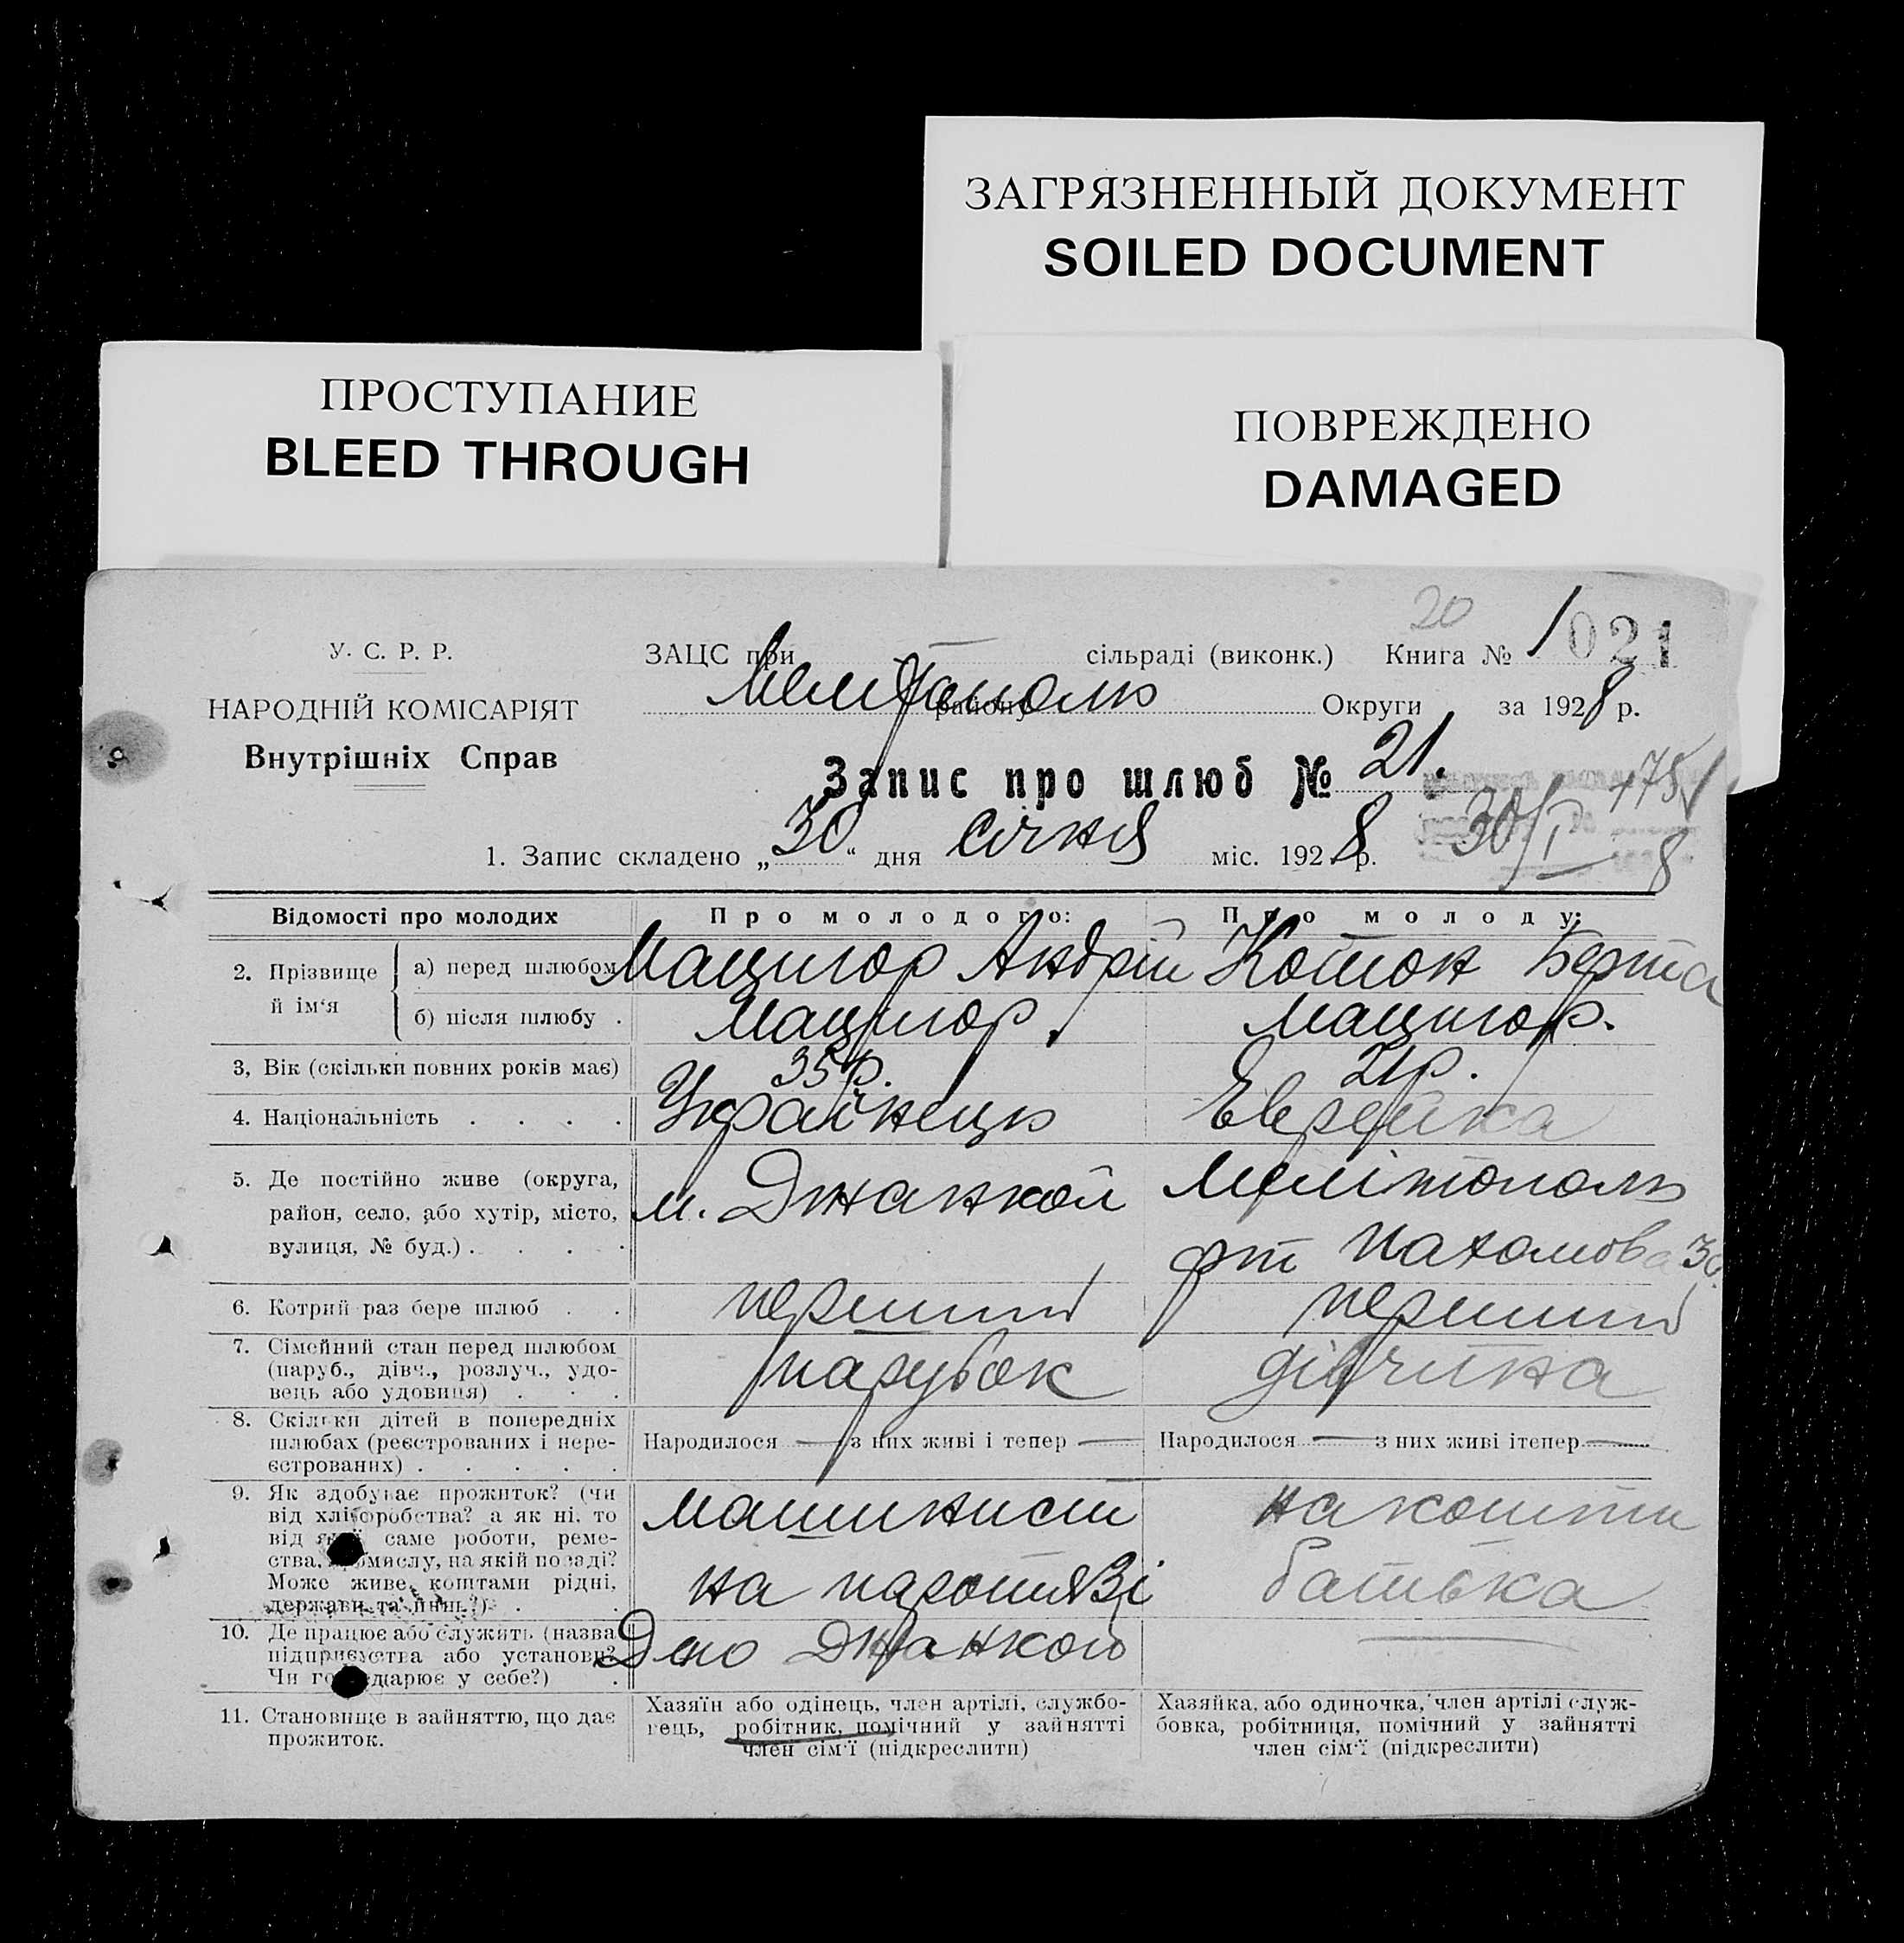 ЗАГРЯЗНЕННЫЙ ДОКУМЕНТ
SOILED DOCUMENT
ПРОСТУПАНИЕ
BLEED THROUGH
ПОВРЕЖДЕНО
DAMAGED
20
У. С. Р. Р.
ЗАЦС при сільраді (виконк.) Книга № 1 021
НАРОДНІЙ КОМІСАРІЯТ
Мелітополь району Округи за 1928 р.
Внутрішніх Справ
Запис про шлюб № 21.
1. Запис складено „30“ дня січня міс. 1928 р. 30/I 8
Відомості про молодих Про молодого: Про молоду:
2. Прізвище й ім'я а) перед шлюбом Мацигор Андрій Котон Берта
б) після шлюбу . Мацигор. Мацигор.
3, Вік (скільки повних років має) 35 р. 21 р.
4. Національність . . . . Українець Еврейка
5. Де постійно живе (округа, район, село, або хутір, місто, вулиця, № буд.) . . . . м. Джанкой Мелітополь
Пахомова
6. Котрий раз бере шлюб . . перший перший
7. Сімейний стан перед шлюбом (паруб., дівч., розлуч., удовець або удовиця) . . . парубок дівчина
8. Скільки дітей в попередніх шлюбах (реєстрованих і нереєстрованих) . . . . . Народилося — з них живі і тепер — Народилося — з них живі ітепер —
9. Як здобуває прожиток? (чи від хліборобства? а як ні, то від якої саме роботи, ремества, промислу, на якій посаді? Може живе коштами рідні, держави та инш.?) . . машинист на паротязі на кошти батька
10. Де працює або служить (назва підприємства або установи? Чи господарює у себе?) . Депо Джанкой —
11. Становище в зайняттю, що дає прожиток.
Хазяїн або одінець, член артілі, службовець, робітник, помічний у зайнятті член сім'ї (підкреслити)
Хазяйка, або одиночка, член артілі службовка, робітниця, помічний у зайнятті член сім'ї (підкреслити)